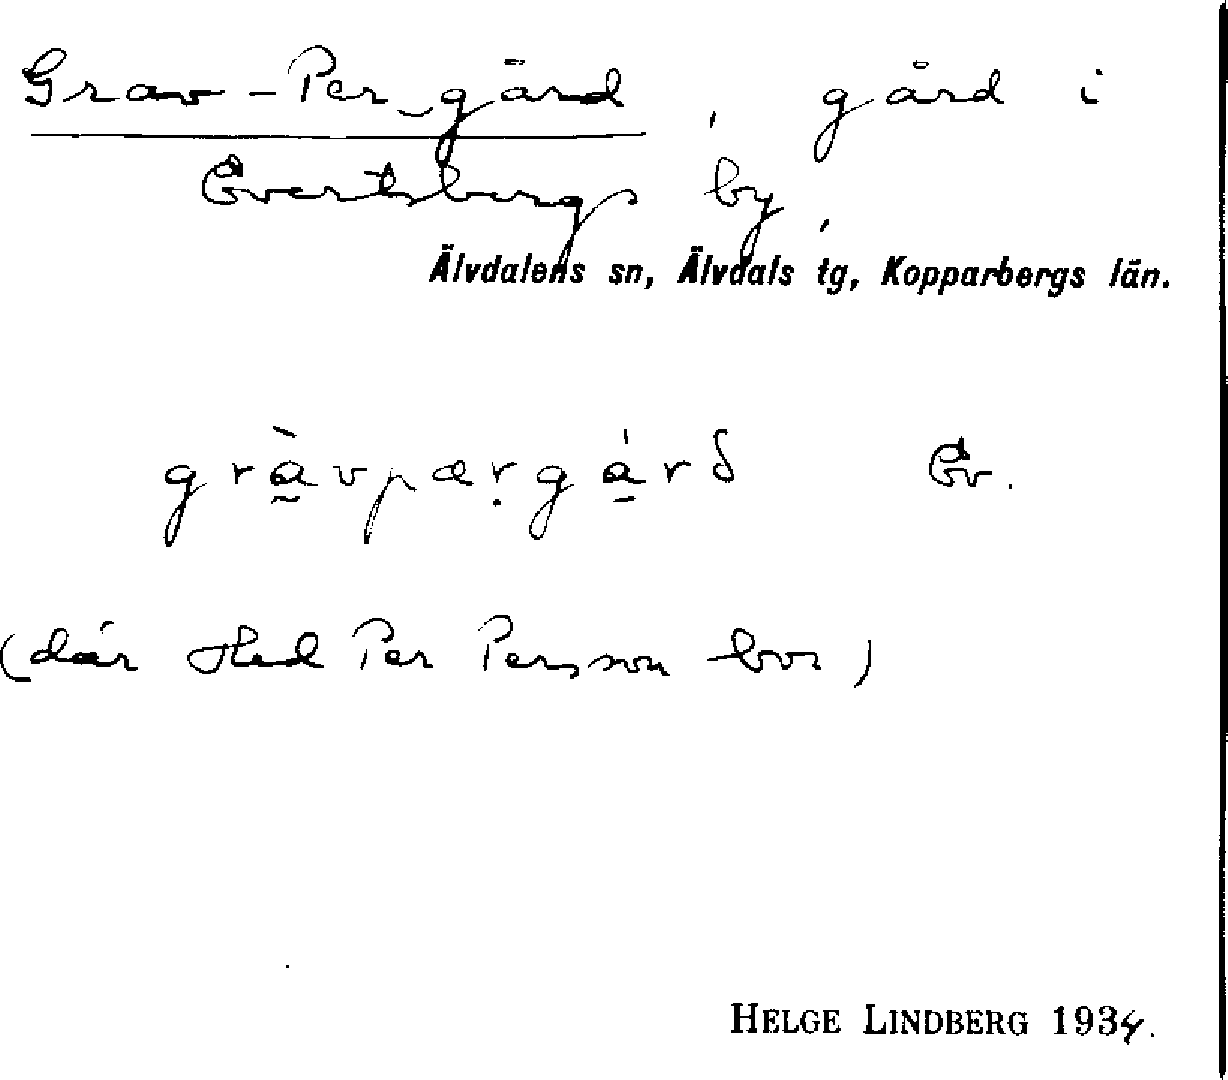 Grav-Per-gård, gård i
Evertsbergs by,
Älvdalens sn, Älvdals tg, Kopparbergs län.
grà̰vpæṛgá̱rδ Ev.
(där Hed Per Persson bor)
HELGE LINDBERG 1934.